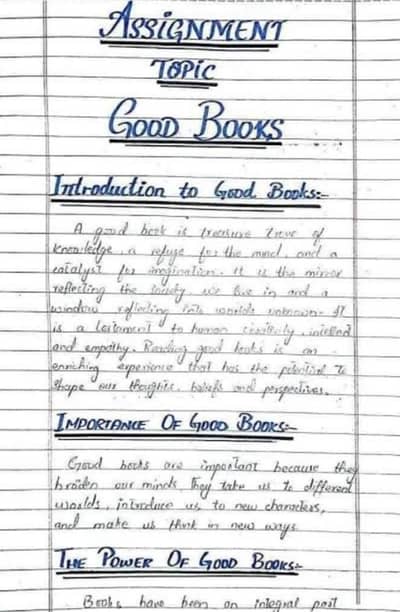 ASSIGNMENT
TOPIC
GOOD BOOKS
Introduction to Good Books:-
A good book is treasure trove of
knowledge, a refuge for the mind, and a
catalyst for imagination. It is the mirror
reflecting the society we live in and a
window reflecting into worlds unknown. It
is a testament to human creativity, intellect
and empathy. Reading good books is an
enriching experience that has the potential to
shape our thoughts, beliefs and perspectives.
IMPORTANCE OF GOOD BOOKS:-
Good books are important because they
broaden our minds. They take us to different
worlds, introduce us to new characters,
and make us think in new ways.
THE POWER OF GOOD BOOKS:-
Books have been an integral part